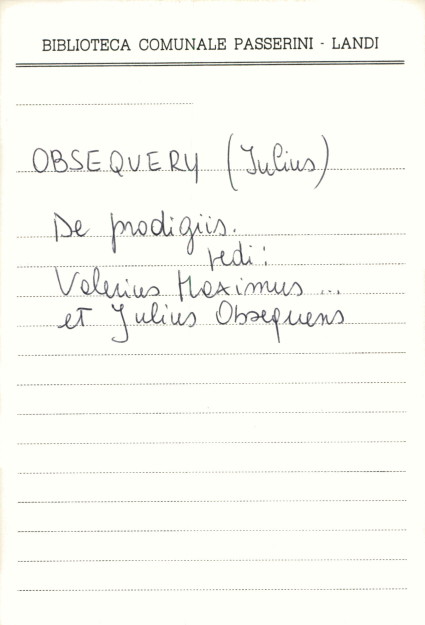 BIBLIOTECA COMUNALE PASSERINI - LANDI
OBSEQUERY (Julius)
De prodigiis.
vedi:
Valerius Maximus ...
et Julius Obsequens